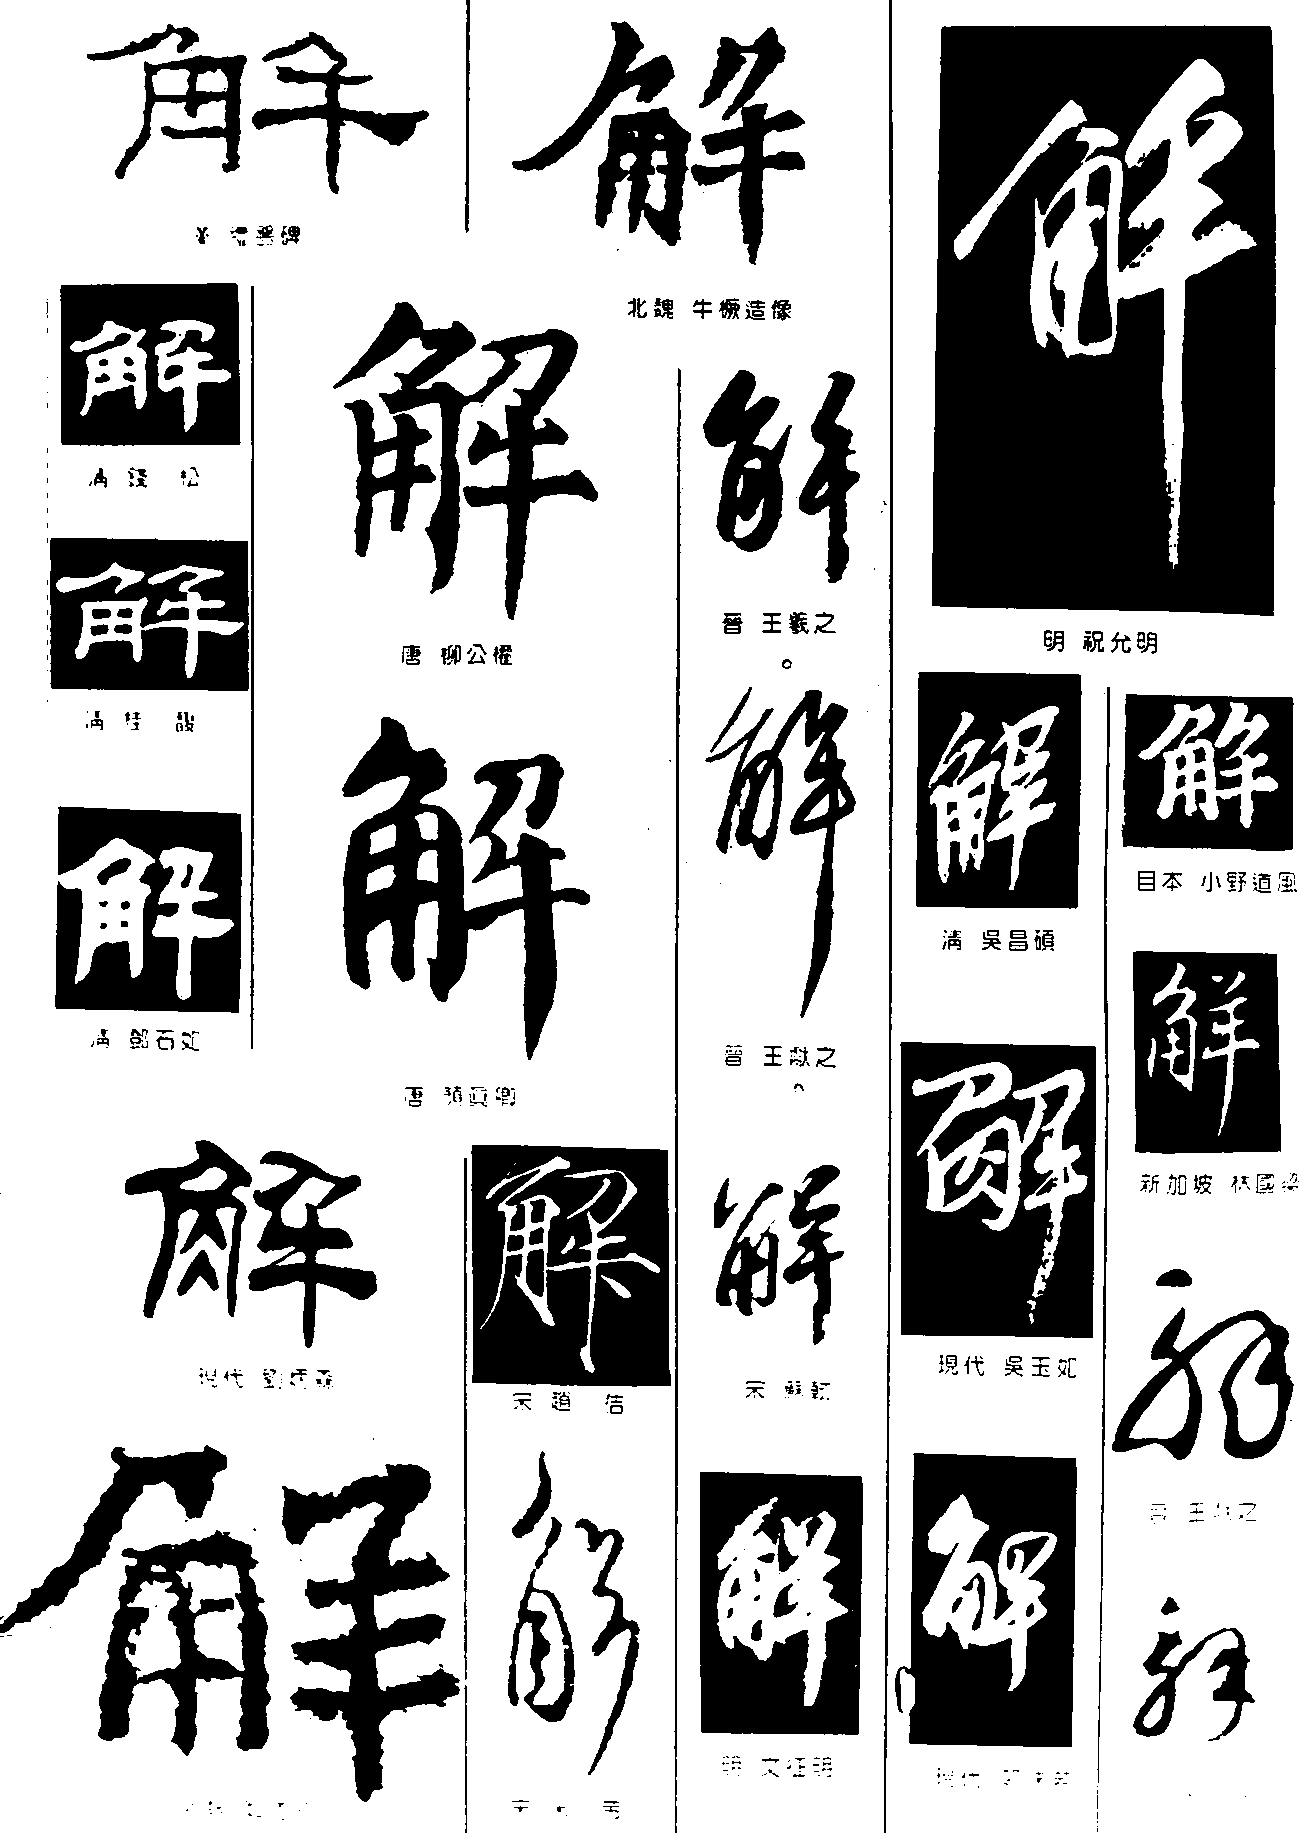 解
解
解
北魏 牛橛造像
解
清 錢 松
解
唐 柳公權
解
晉 王羲之
明 祝允明
解
清 桂 馥
解
清 鄧石如
解
唐 顏真卿
解
晉 王獻之
解
清 吳昌碩
解
日本 小野道風
解
新加坡 林國梁
解
現代 吳玉如
解
解
宋 趙 佶
解
宋 蘇軾
解
晉 王羲之
解
解
解
明 文征明
解
解